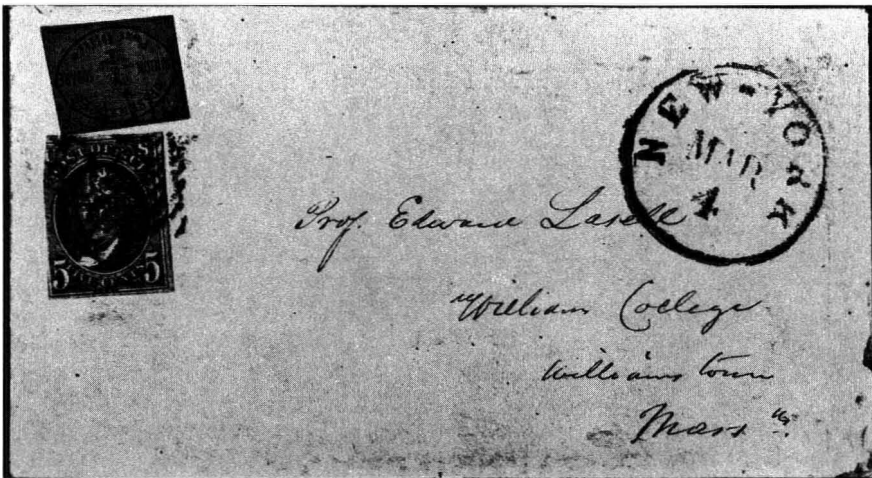 POST OFFICE
5 5
NEW-YORK
MAR
4
Prof. Edward Lasell
William College
Williamstown
Mass